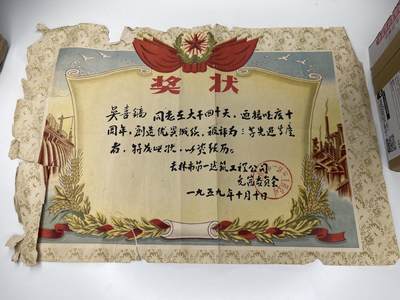 奖状
吴喜 同志在大干四十天，迎接国庆十
周年，创造优异成绩，被评为 等先进生产
者，特发此状，以资 。
吉林市第一建筑工程公司
委员会
一九五九年十月十日